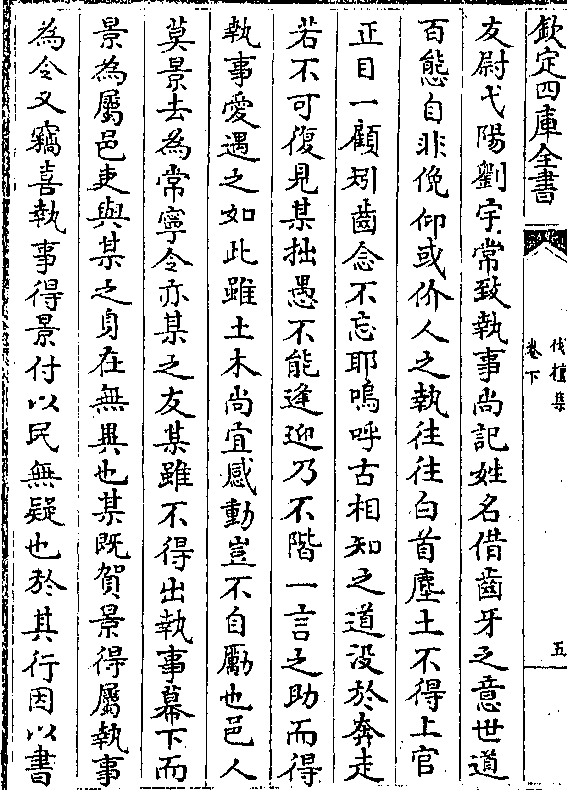 欽定四庫全書
伐檀集
卷下
五
友尉弋陽劉宇常致執事尚記姓名借齒牙之意世道
百態自非俛仰或价人之執往往白首塵土不得上官
正目一顧矧齒念不忘耶嗚呼古相知之道没於奔走
若不可復見某拙愚不能逢迎乃不階一言之助而得
執事愛遇之如此雖土木尚宜感動豈不自勵也邑人
莫景去為常寧令亦某之友某雖不得出執事幕下而
景為屬邑吏與某之身在無異也某既賀景得屬執事
為令又竊喜執事得景付以民無疑也於其行因以書